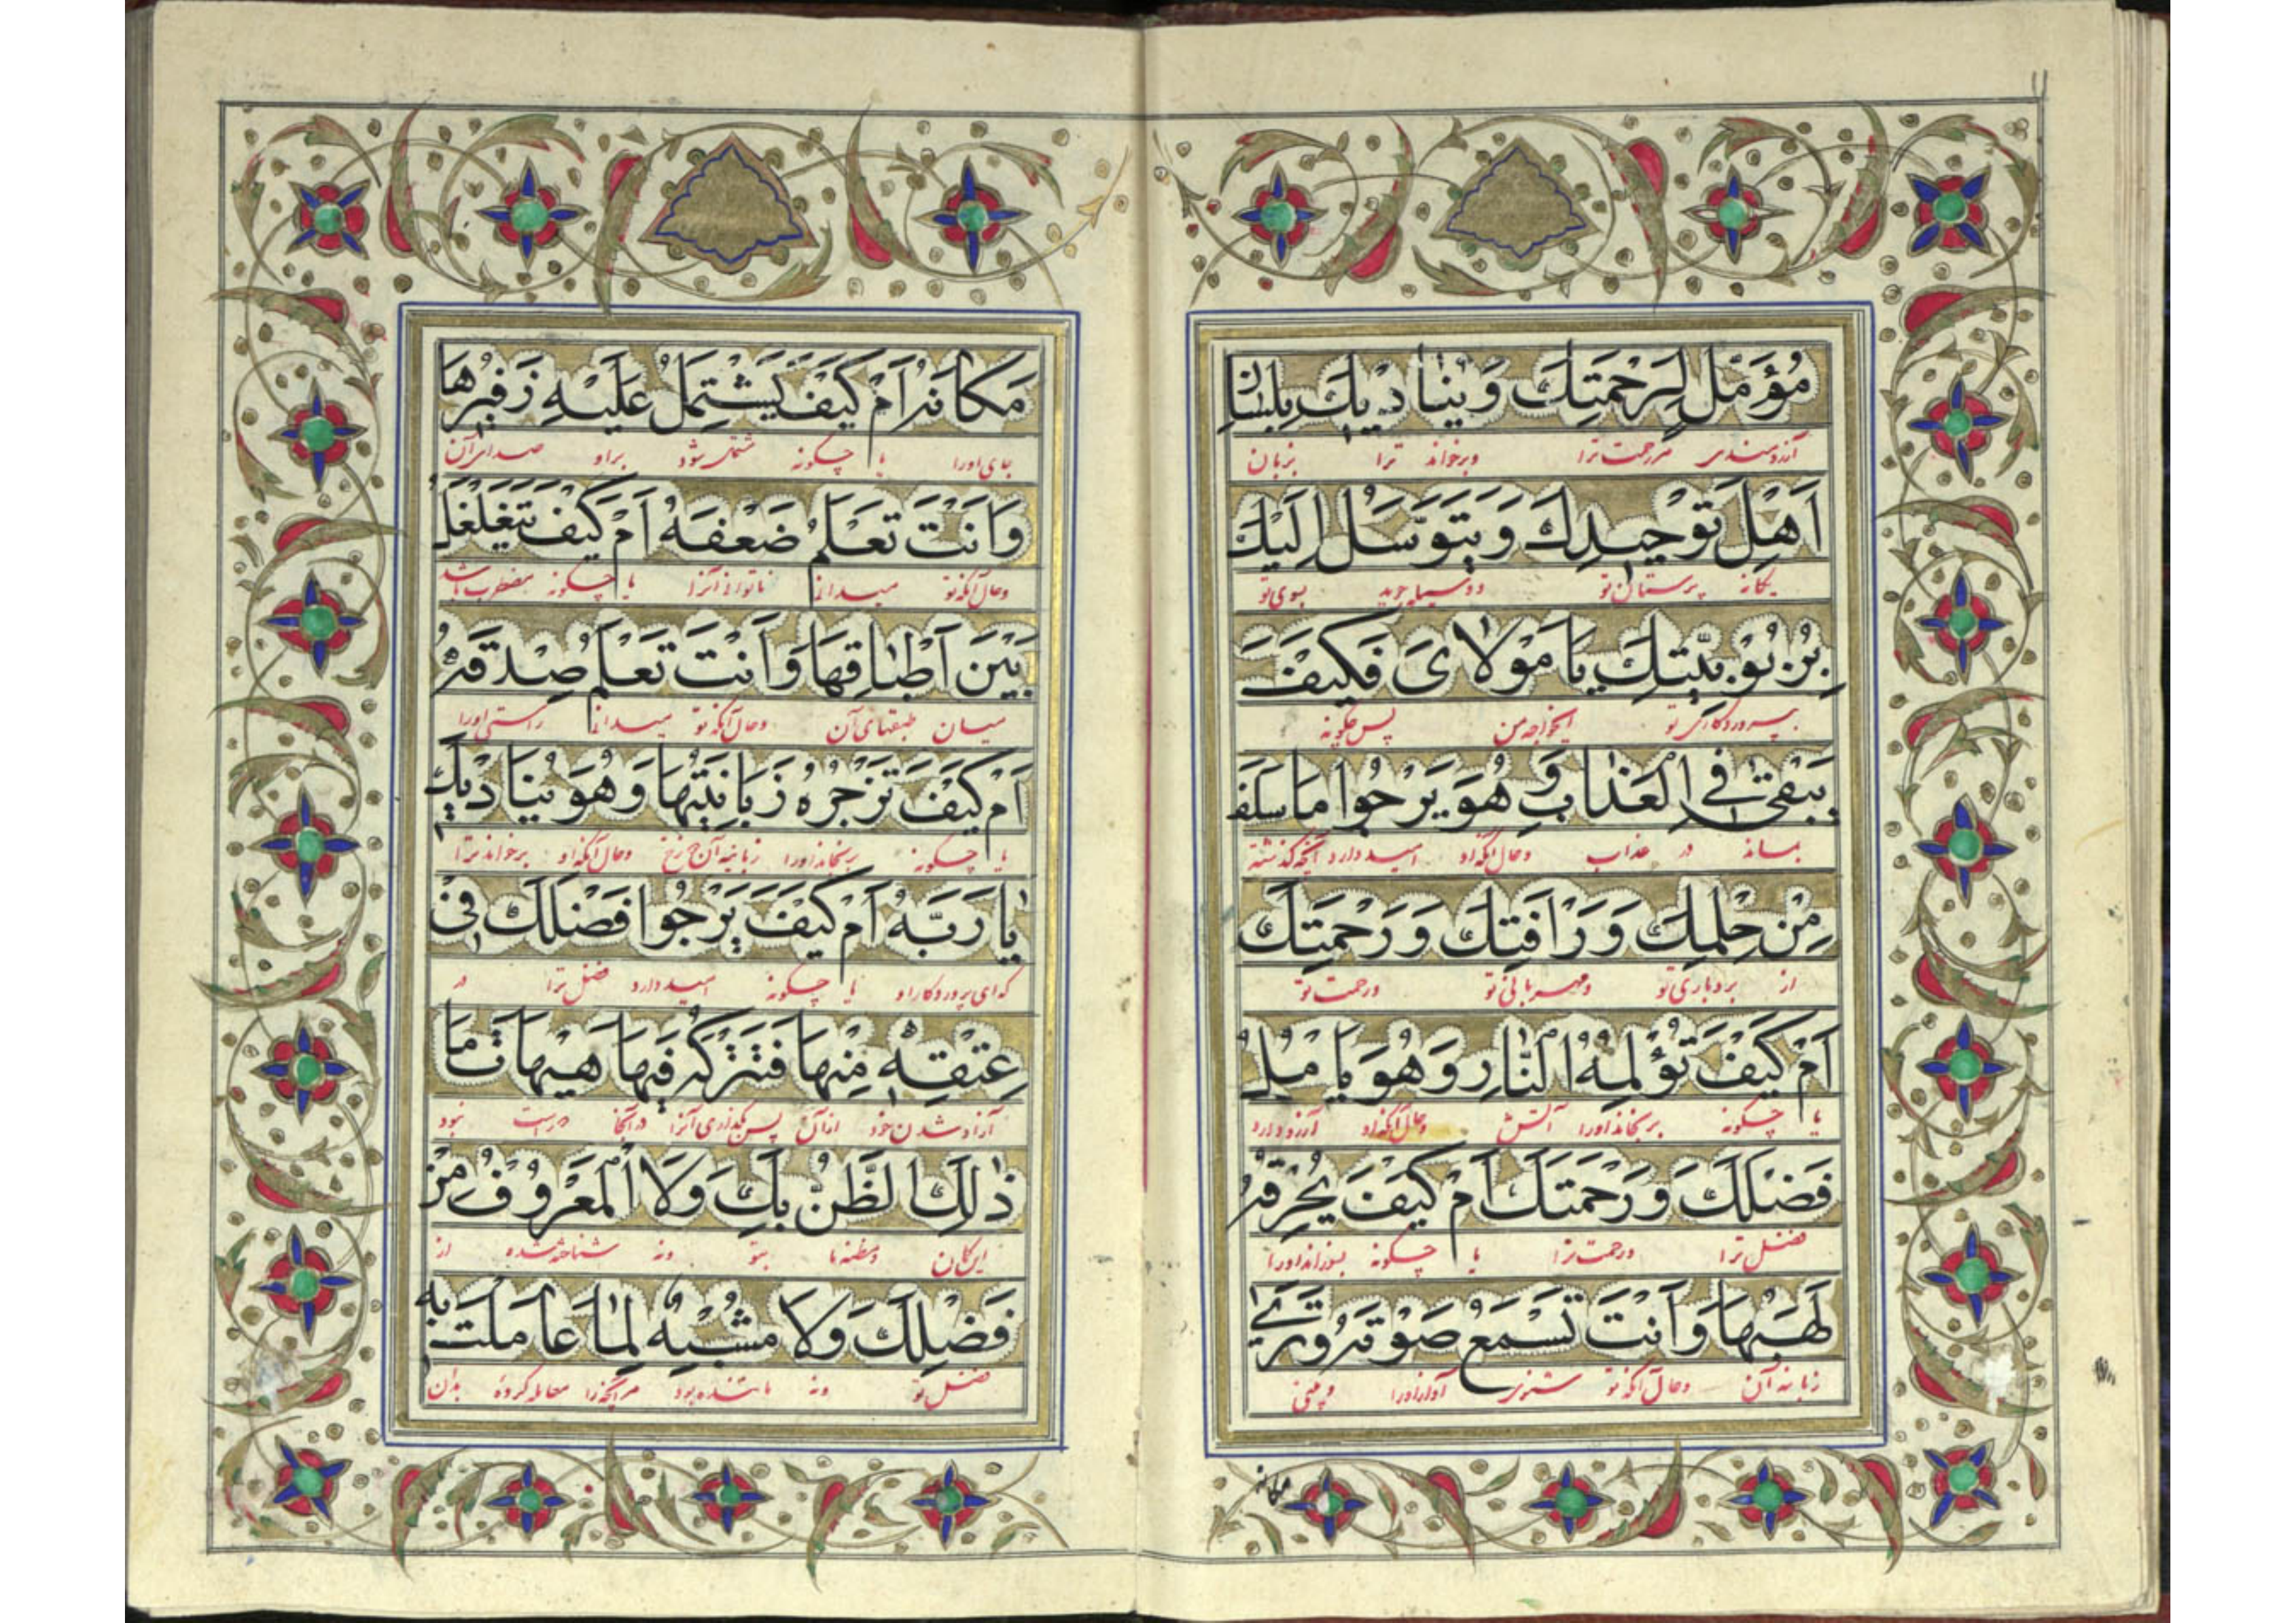 ۱۱
مُؤَمِّلٍ لِرَحْمَتِكَ وَيُنَادِيكَ بِلِسَانِ
آرزومندی مر رحمت ترا وبرخواند ترا بزبان
اَهْلِ تَوْحِيدِكَ وَيَتَوَسَّلُ اِلَيْكَ
یگانه پرستان تو ووسیله جوید بسوی تو
بِرُبُوبِيَّتِكَ يَا مَوْلَايَ فَكَيْفَ
بپروردگاری تو ایخواجه من پس چگونه
يَبْقىٰ فِي الْعَذَابِ وَهُوَ يَرْجُوا مَا سَلَفَ
بماند در عذاب وحال آنکه او امید دارد آنچه گذشته
مِنْ حِلْمِكَ وَرَأْفَتِكَ وَرَحْمَتِكَ
از بردباری تو ومهربانی تو ورحمت تو
اَمْ كَيْفَ تُؤْلِمُهُ النَّارُ وَهُوَ يَأْمُلُ
یا چگونه برنجاند اورا آتش وحال آنکه او آرزو دارد
فَضْلَكَ وَرَحْمَتَكَ اَمْ كَيْفَ يُحْرِقُهُ
فضل ترا ورحمت ترا یا چگونه بسوزاند اورا
لَهَبُهَا وَاَنْتَ تَسْمَعُ صَوْتَهُ وَتَرىٰ
زبانه آن وحال آنکه تو شنوی آواز اورا وبینی
مکانه
مَكَانَهُ اَمْ كَيْفَ يَشْتَمِلُ عَلَيْهِ زَفِيرُهَا
جای اورا یا چگونه مشتمل شود براو صدای آن
وَاَنْتَ تَعْلَمُ ضَعْفَهُ اَمْ كَيْفَ يَتَغَلْغَلُ
وحال آنکه تو میدانی ناتوانی آنرا یا چگونه مضطرب باشد
بَيْنَ اَطْبَاقِهَا وَاَنْتَ تَعْلَمُ صِدْقَهُ
میان طبقهای آن وحال آنکه تو میدانی راستی اورا
اَمْ كَيْفَ تَزْجُرُهُ زَبَانِيَتُهَا وَهُوَ يُنَادِيكَ
یا چگونه برنجاند اورا زبانیه آن وحال آنکه او برخواند ترا
يَا رَبَّهُ اَمْ كَيْفَ يَرْجُوا فَضْلَكَ فِي
که ای پروردگار او یا چگونه امید دارد فضل ترا در
عِتْقِهِ مِنْهَا فَتَتْرُكُهُ فِيهَا هَيْهَاتَ مَا
آزاد شدن خود ازآن پس بگذاری آنرا درآنجا نبود
ذٰلِكَ الظَّنُّ بِكَ وَلَا الْمَعْرُوفُ مِنْ
این گمان بتو ونه شناخته شده از
فَضْلِكَ وَلَا مُشْبِهٌ لِمَا عَامَلْتَ بِهِ
فضل تو ونه ماننده بود مر آنچه را معامله کرده بدان